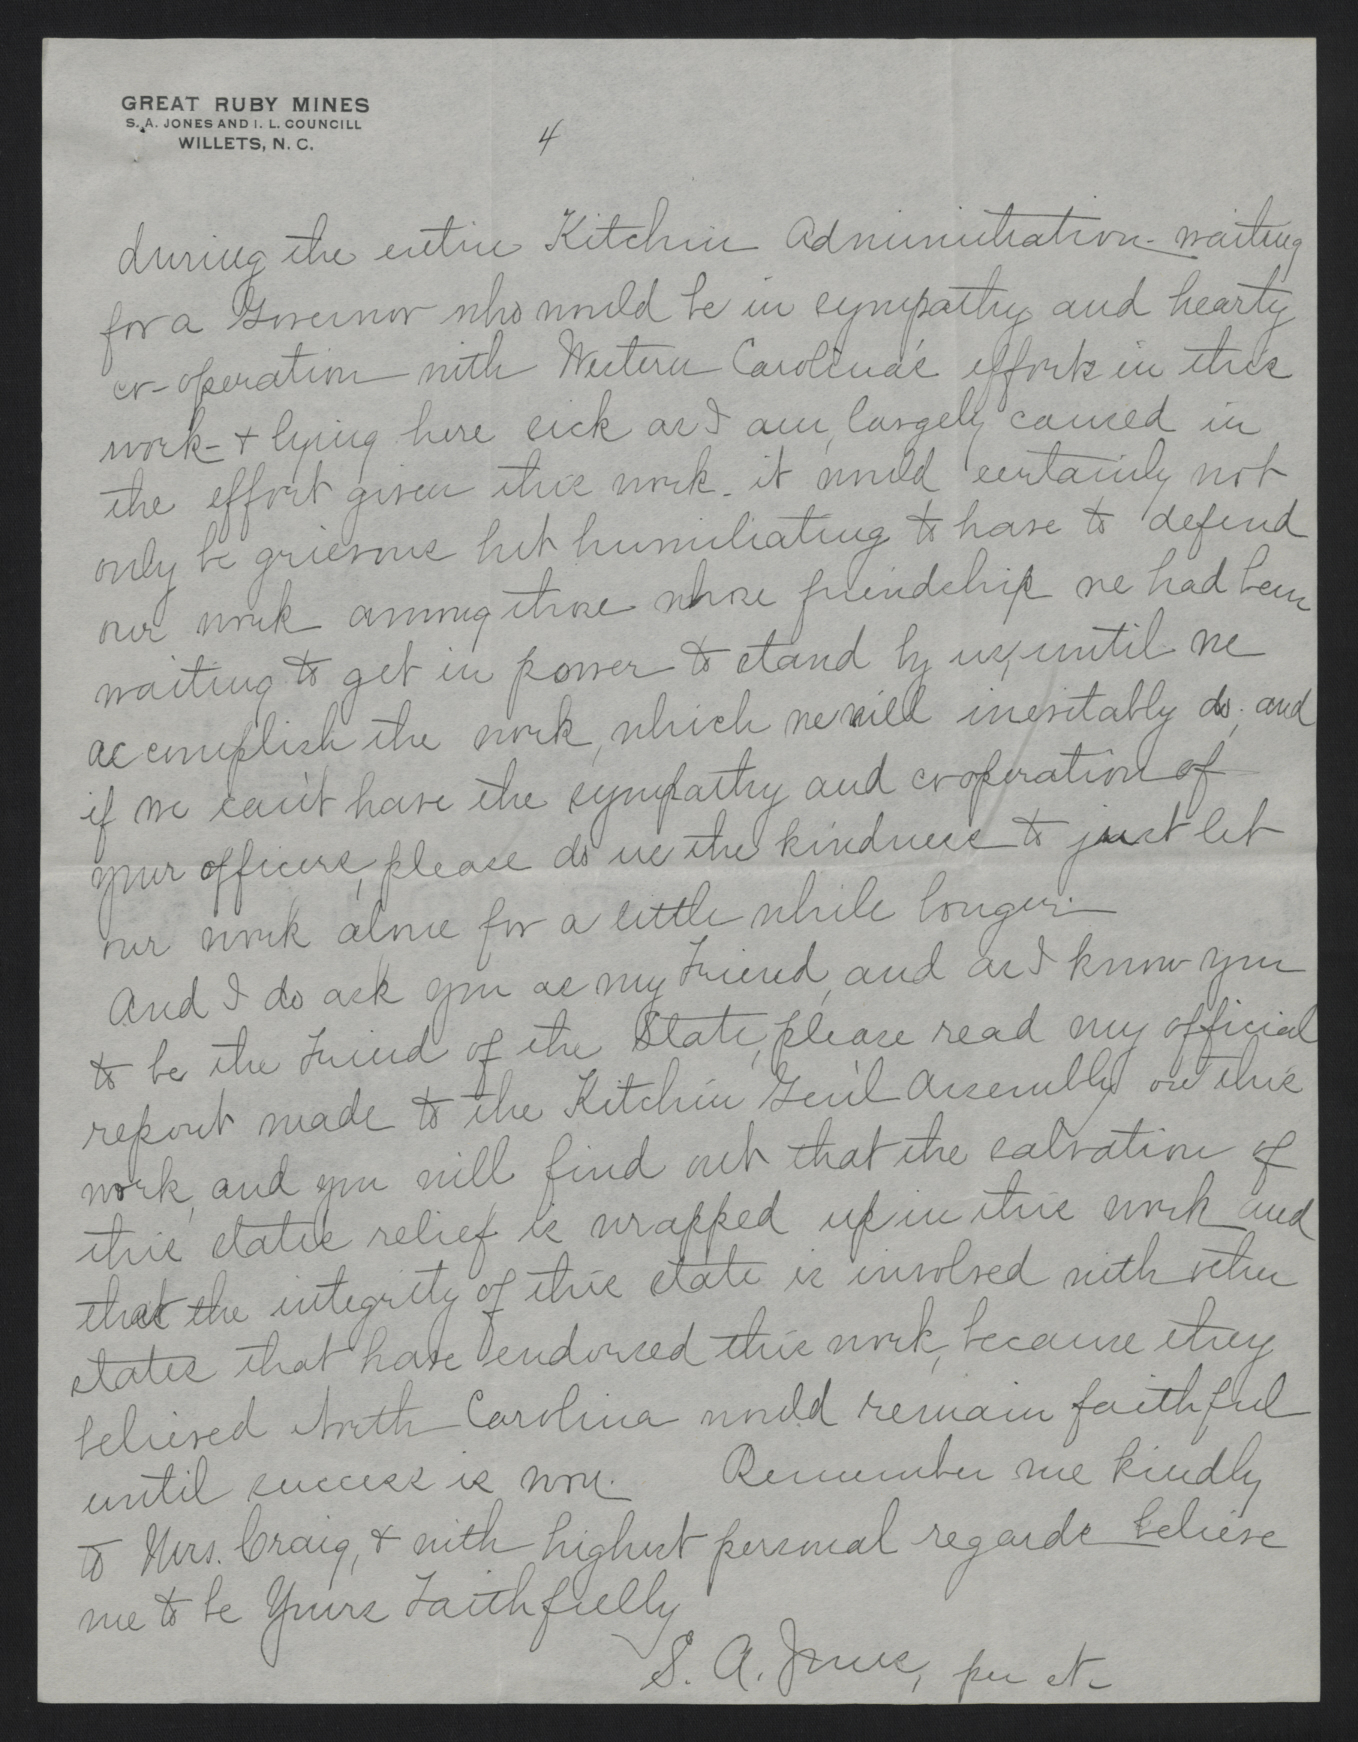 GREAT RUBY MINES
S. A. JONES AND I. L. COUNCILL
WILLETS, N. C.
4
during the entire Kitchin Administration - waiting
for a Governor who would be in sympathy and hearty
co-operation with Western Carolina's efforts in this
work - & lying here sick as I am, largely caused in
the effort given this work - it would certainly not
only be grievous but humiliating to have to defend
our work among those whose friendship we had been
waiting to get in power to stand by us, until we
accomplish the work, which we will inevitably do; and
if we can't have the sympathy and co-operation of
your officers, please do us the kindness to just let
our work alone for a little while longer.
And I do ask you as my Friend, and as I know you
to be the Friend of the State, please read my official
report made to the Kitchin Gen'l Assembly on this
work, and you will find out that the salvation of
this states relief is wrapped up in this work and
that the integrity of this state is involved with other
states that have endorsed this work, because they
believed North Carolina would remain faithful
until success is won. Remember me kindly
to Mrs. Craig, & with highest personal regards believe
me to be Yours Faithfully
S. A. Jones, per N-